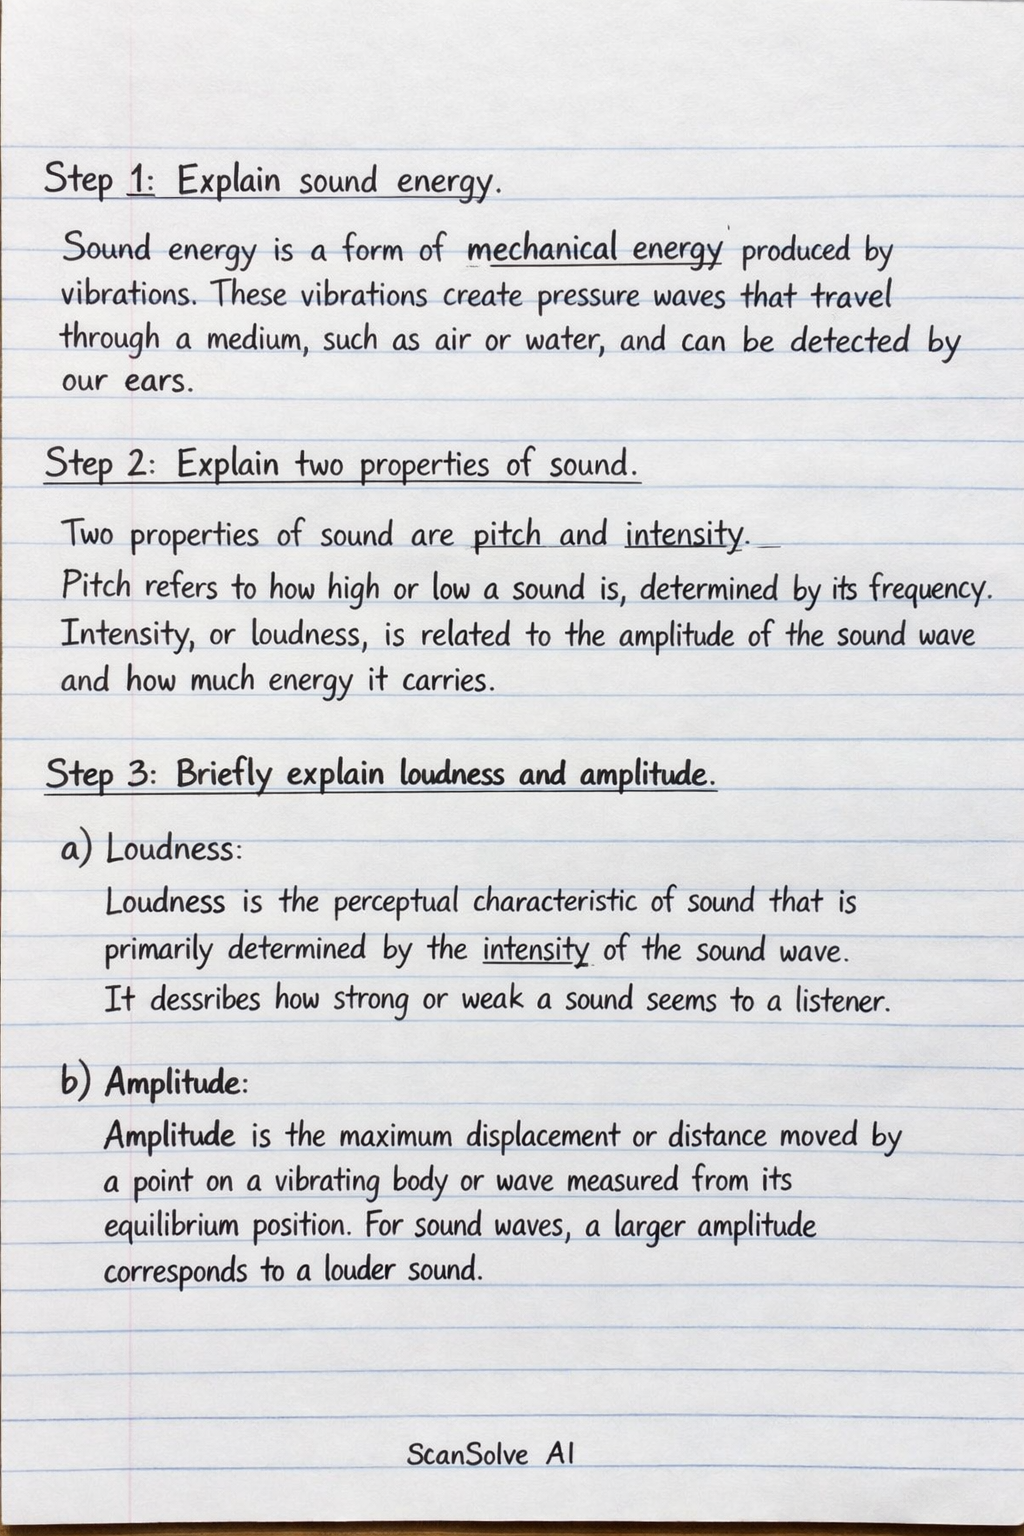 Step 1: Explain sound energy.
Sound energy is a form of mechanical energy produced by
vibrations. These vibrations create pressure waves that travel
through a medium, such as air or water, and can be detected by
our ears.
Step 2: Explain two properties of sound.
Two properties of sound are pitch and intensity.
Pitch refers to how high or low a sound is, determined by its frequency.
Intensity, or loudness, is related to the amplitude of the sound wave
and how much energy it carries.
Step 3: Briefly explain loudness and amplitude.
a) Loudness:
Loudness is the perceptual characteristic of sound that is
primarily determined by the intensity of the sound wave.
It dessribes how strong or weak a sound seems to a listener.
b) Amplitude:
Amplitude is the maximum displacement or distance moved by
a point on a vibrating body or wave measured from its
equilibrium position. For sound waves, a larger amplitude
corresponds to a louder sound.
ScanSolve AI